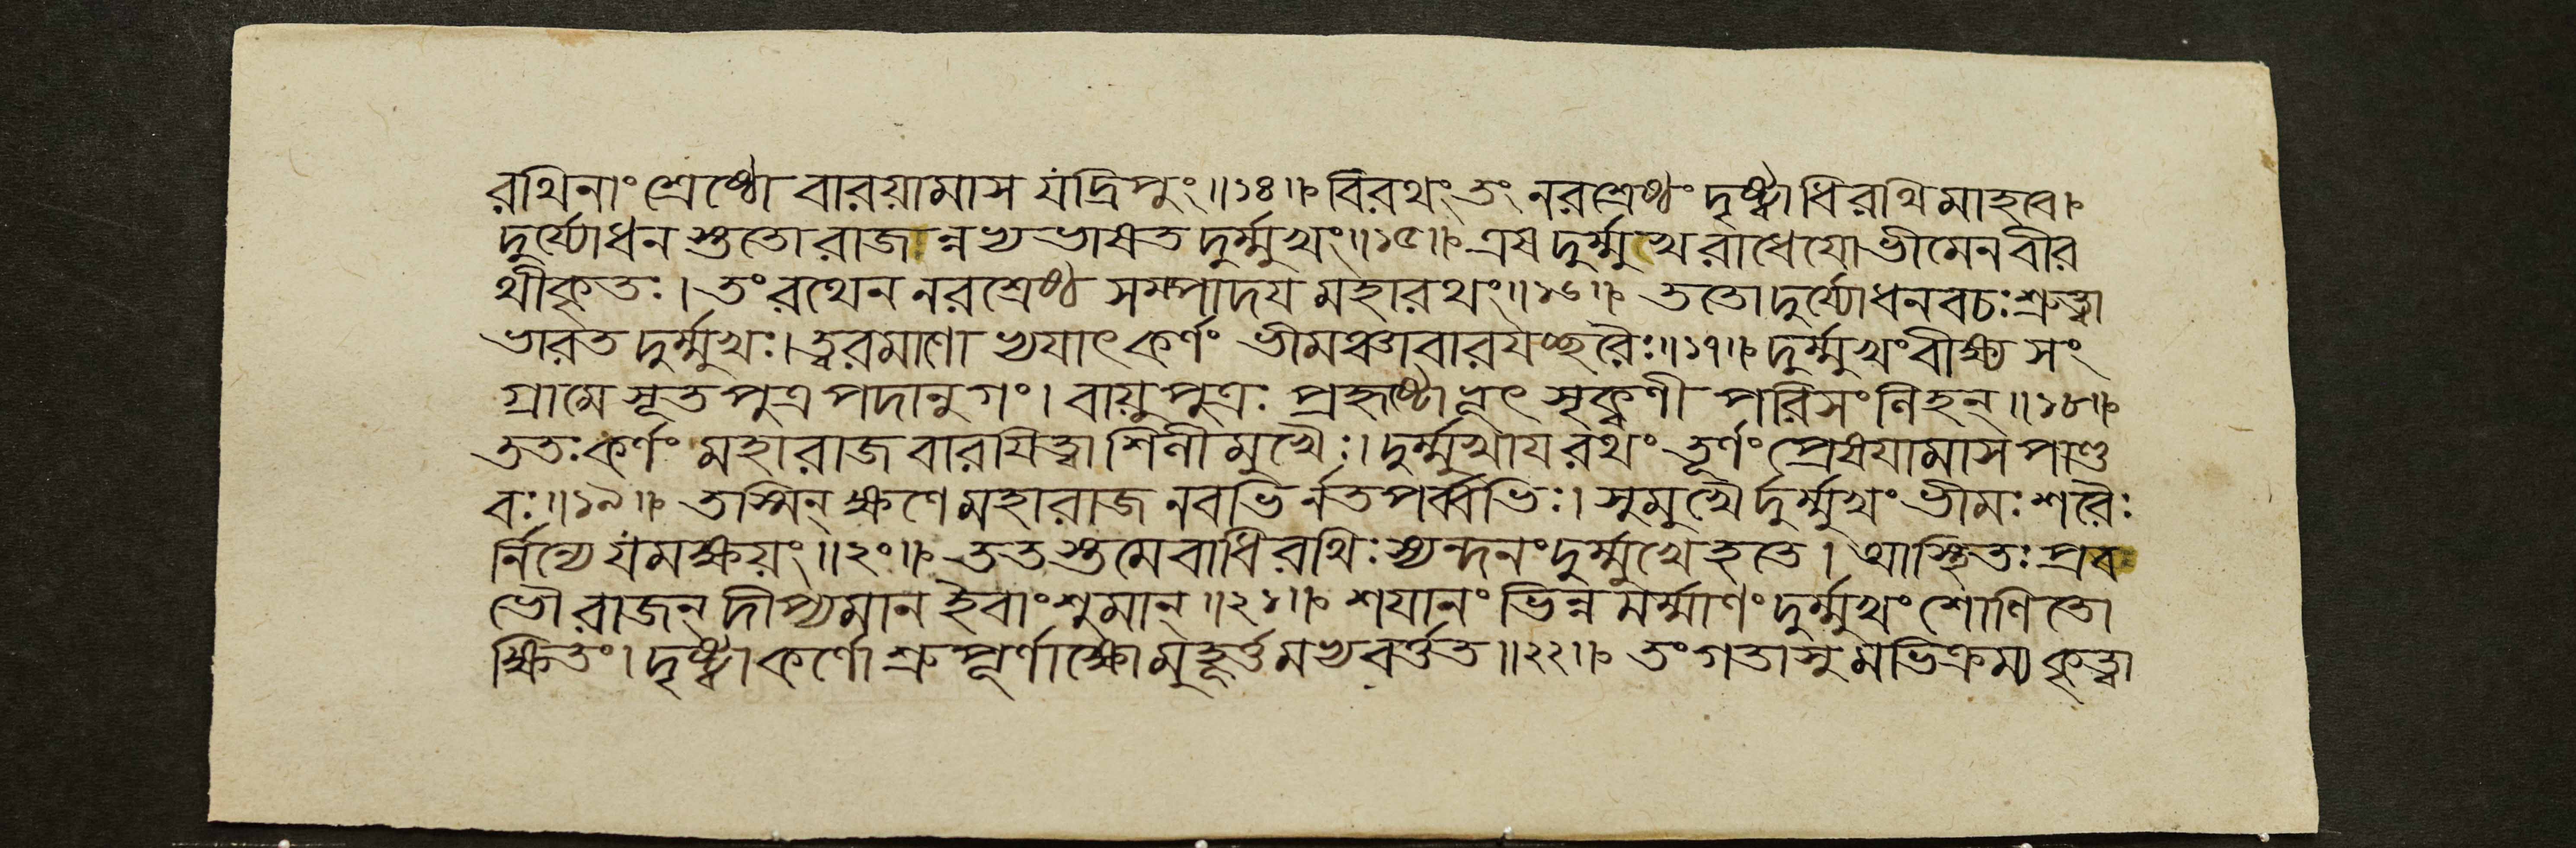 রথিনাং শ্রেষ্ঠো বারয়ামাস যদ্রিপুং॥১৪॥ বিরথং তং নরশ্রেষ্ঠং দৃষ্ট্বাধিরথিমাহবে।
দুর্য্যোধন স্ততো রাজান্নভ্যভাষত দুর্ম্মুখং॥১৫॥ এষ দুর্ম্মুখ রাধেয়ো ভীমেন বীর
থীকৃতঃ। তং রথেন নরশ্রেষ্ঠ সম্পাদয় মহারথং॥১৬॥ ততো দুর্য্যোধনবচঃ শ্রুত্বা
ভারত দুর্ম্মুখঃ। ত্বরমাণো ভ্যযাৎ কর্ণং ভীমঞ্চাবারয়চ্ছরৈঃ॥১৭॥ দুর্ম্মুখং বীক্ষ্য সং
গ্রামে সূতপুত্র পদানুগং। বায়ুপুত্রঃ প্রহৃষ্টো ভূৎ সৃক্কণী পরিসংনিহন্॥১৮॥
ততঃ কর্ণং মহারাজ বারয়িত্বা শিলীমুখৈঃ। দুর্ম্মুখায় রথং তূর্ণং প্রেষয়ামাস পাণ্ড
বঃ॥১৯॥ তস্মিন্ ক্ষণে মহারাজ নবভি র্নতপর্ব্বভিঃ। সুমুখৈ র্দুর্ম্মুখং ভীমঃ শরৈঃ
র্নিন্যে যমক্ষয়ং॥২০॥ ততস্তমেবাধিরথিঃ স্যন্দনং দুর্ম্মুখে হতে। আস্থিতঃ প্রব
ভৌ রাজন্ দীপ্যমান ইবাংশুমান্॥২১॥ শয়ানং ভিন্নমর্ম্মাণং দুর্ম্মুখং শোণিতো
ক্ষিতং। দৃষ্ট্বা কর্ণো শ্রুপূর্ণাক্ষো মুহূর্ত্তমভ্যবর্ত্তত॥২২॥ তং গতাসুমভিক্রম্য কৃত্বা